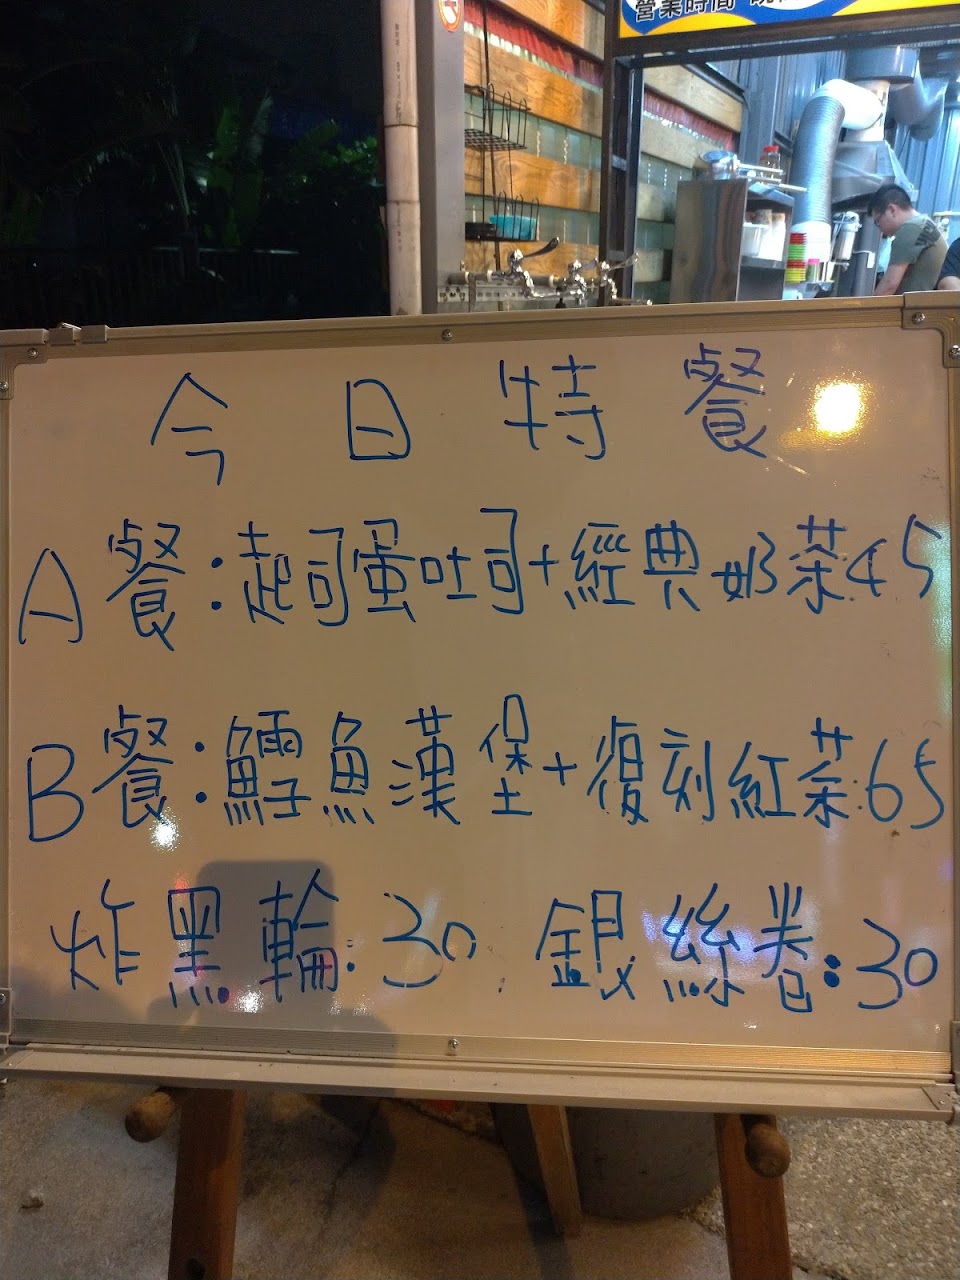 營業時間
今日特餐
A餐:起司蛋吐司+經典奶茶:45
B餐:鱈魚漢堡+復刻紅茶:65
炸黑輪:30. 銀絲卷:30